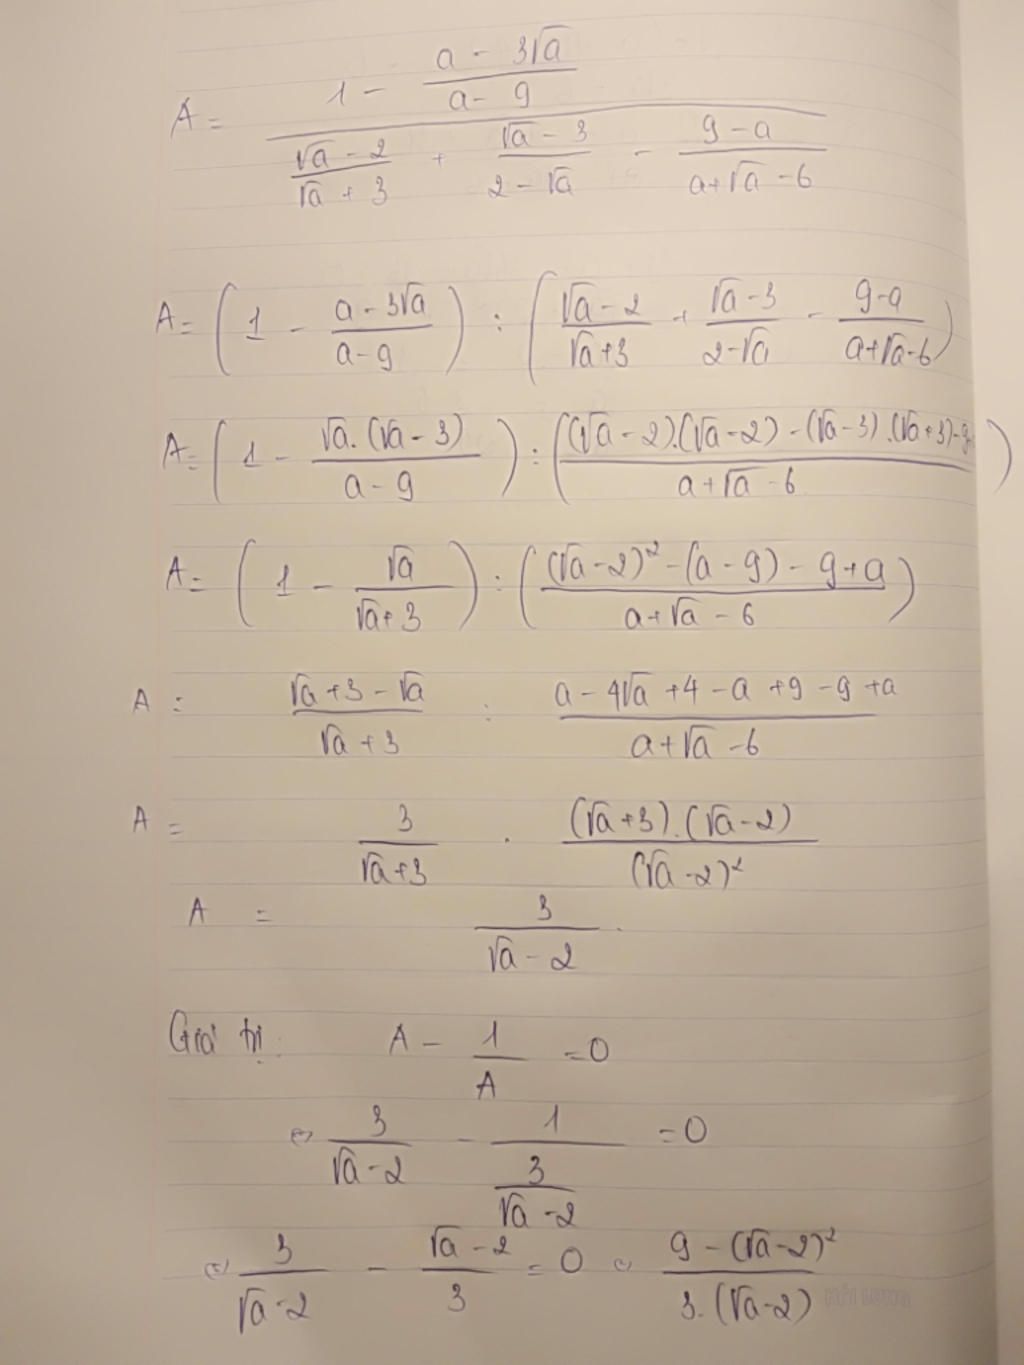 A = (1 - (a - 3√a)/(a - 9)) / ((√a - 2)/(√a + 3) + (√a - 3)/(2 - √a) - (9 - a)/(a + √a - 6))
A = (1 - (a - 3√a)/(a - 9)) : ((√a - 2)/(√a + 3) + (√a - 3)/(2 - √a) - (9 - a)/(a + √a - 6))
A = (1 - (√a . (√a - 3))/(a - 9)) : (((√a - 2).(√a - 2) - (√a - 3).(√a + 3) - 9)/(a + √a - 6))
A = (1 - √a/(√a + 3)) : (((√a - 2)² - (a - 9) - 9 + a)/(a + √a - 6))
A = (√a + 3 - √a)/(√a + 3) : (a - 4√a + 4 - a + 9 - 9 + a)/(a + √a - 6)
A = 3/(√a + 3) . ((√a + 3).(√a - 2))/(√a - 2)²
A = 3/(√a - 2) .
Giá trị: A - 1/A = 0
⇔ 3/(√a - 2) - 1/(3/(√a - 2)) = 0
⇔ 3/(√a - 2) - (√a - 2)/3 = 0 ⇔ (9 - (√a - 2)²)/(3.(√a - 2))